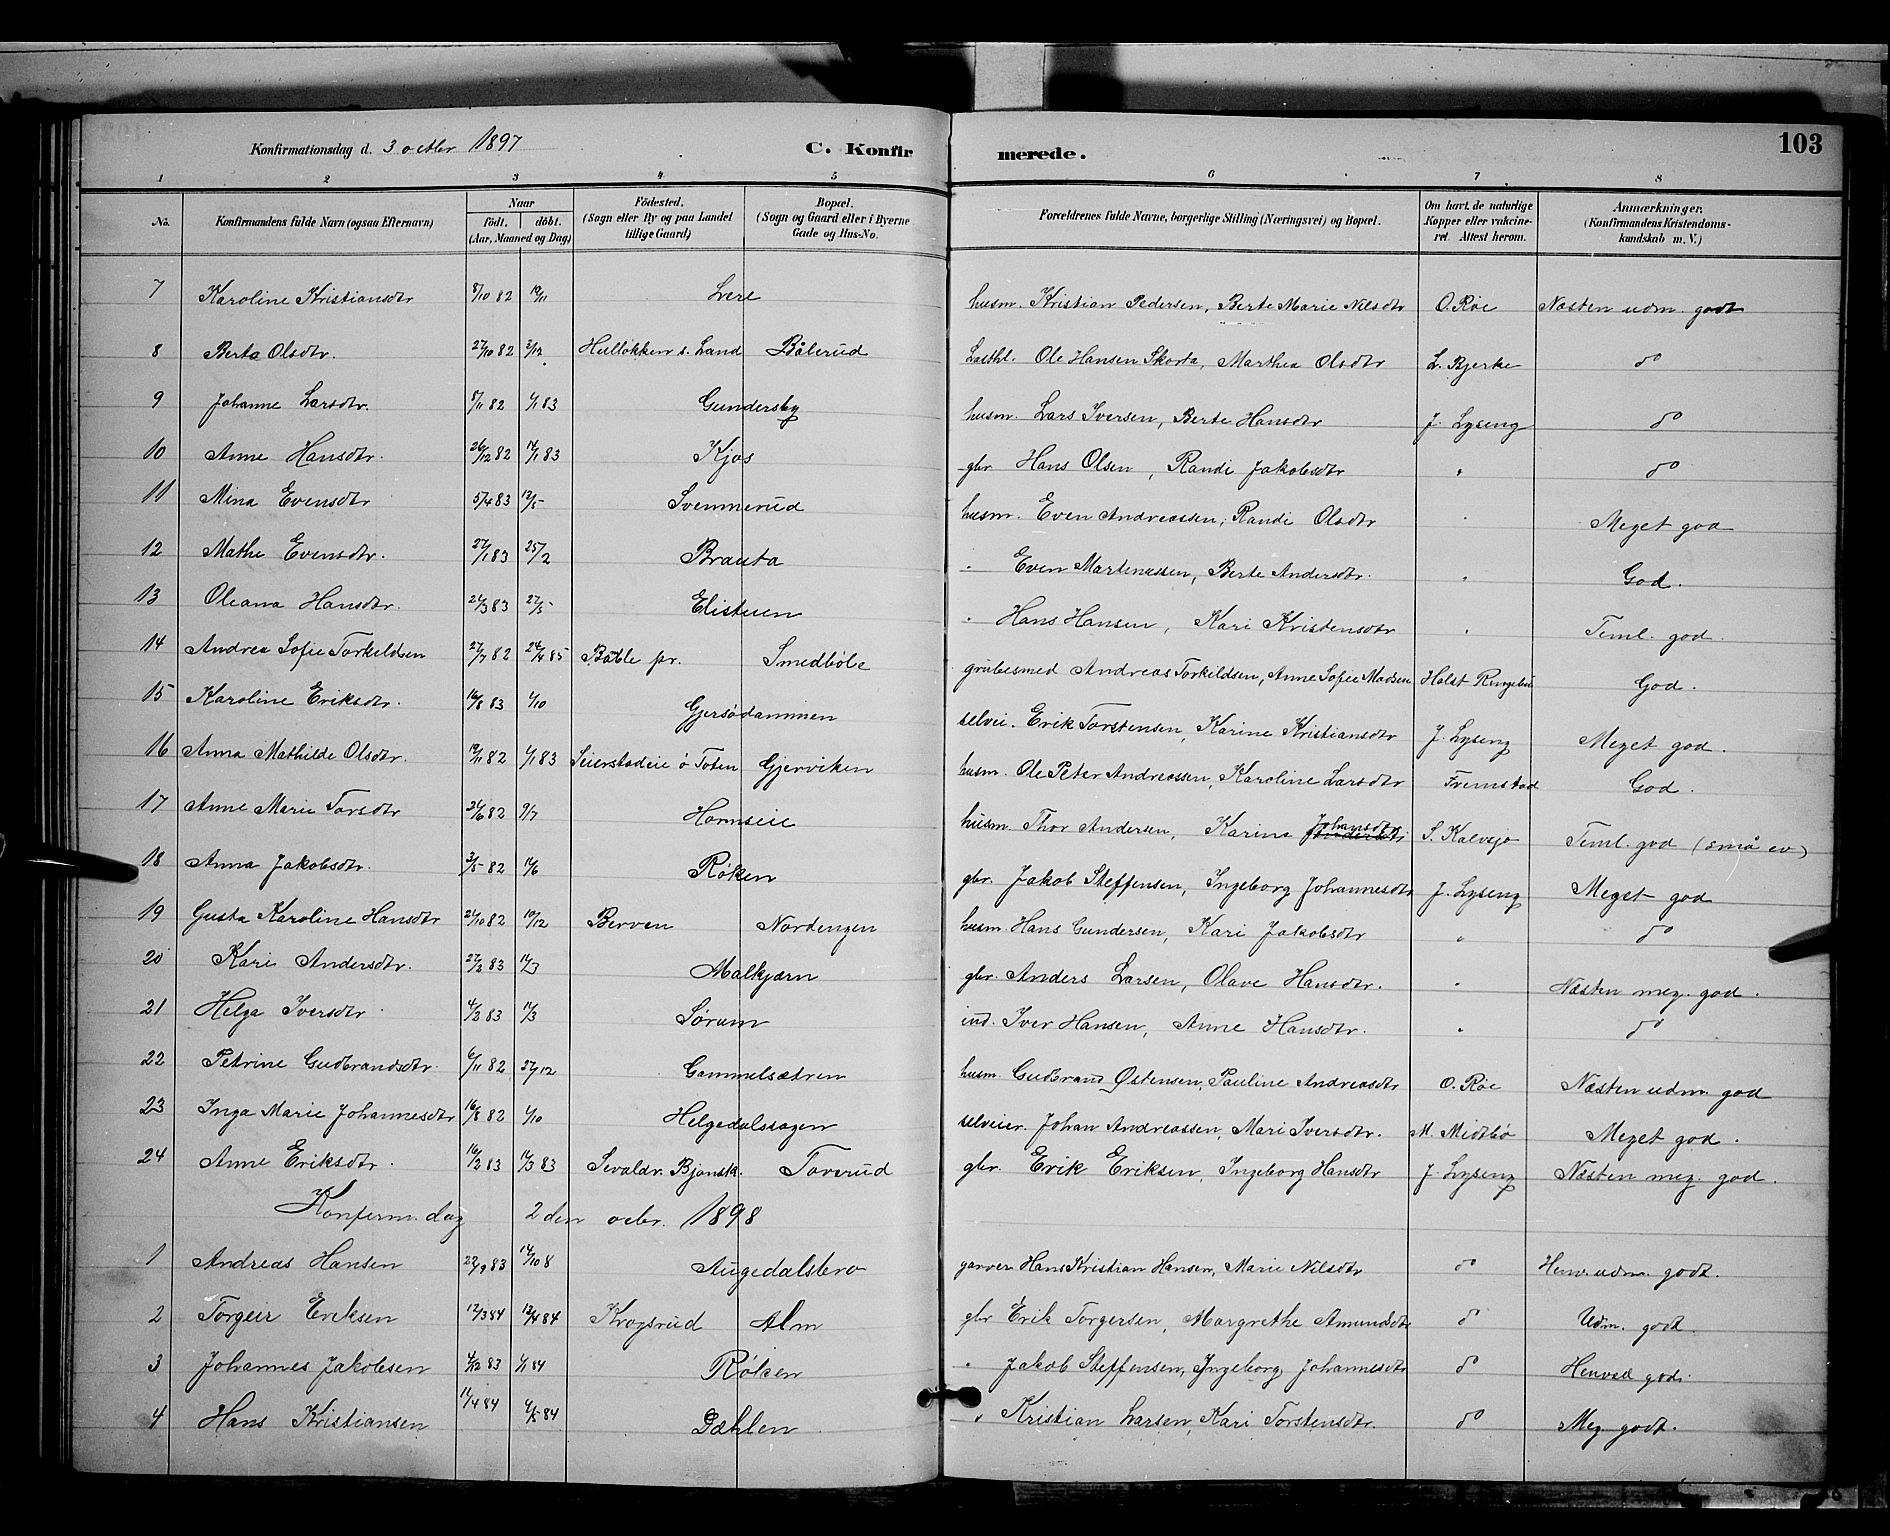 Konfirmationsdag d. 3 octbr 1897 C. Konfirmerede. 103
1 2 3 4 5 6 7 8
No. Konfirmandens fulde Navn (ogsaa Efternavn) Naar født. døbt. (Aar, Maaned og Dag) Fødested. (Sogn eller By og paa Landet tillige Gaard) Bopæl. (Sogn og Gaard eller i Byerne Gade og Hus-No. Forældrenes fulde Navne, borgerlige Stilling (Næringsvei) og Bopæl. Om havt de naturlige Kopper eller vakcineret Attest herom. Anmærkninger, (Konfirmandens Kristendomskundskab m. V.)
7 Karoline Kristiansdtr 8/10 82 19/11 Lere husm. Kristian Pedersen, Berte Marie Nilsdtr O. Røe Næsten udm. godt
8 Berta Olsdtr. 27/10 82 3/12 Hulløkken s. Land Bålerud Ole Hansen Skorta, Marthea Olsdtr L. Bjerke do
9 Johanne Larsdtr. 8/11 82 1/1 83 Gundersby husm. Lars Iversen, Berte Hansdtr J. Lyseng do
10 Anne Hansdtr. 26/12 82 14/1 83 Kjos gbr Hans Olsen, Randi Jakobsdtr " do
11 Mina Evensdtr 5/4 83 13/5 Svennerud husm. Even Andreassen, Randi Olsdtr " Meget god
12 Mathe Evensdtr. 27/1 83 25/2 Brauta " Even Martinussen, Berte Andersdtr. " God.
13 Oleana Hansdtr. 24/3 83 27/5 Elistuen " Hans Hansen, Kari Kristensdtr " Teml. god.
14 Andrea Sofie Torkildsen 27/7 82 24/4 85 Bøble pr. Smedbøle grubesmed Andreas Torkildsen, Anne Sofie Madsen Holst Ringebu God.
15 Karoline Eriksdtr. 16/8 83 1/10 Gjersødammen selvei. Erik Torstensen, Karine Kristiansdtr J. Lyseng Meget god.
16 Anna Mathilde Olsdtr. 19/11 82 1/1 83 Seierstadeie ø Toten Gjerviken husm. Ole Peter Andreassen, Karoline Larsdtr Fremstad God.
17 Anne Marie Torsdtr 24/6 82 9/7 Hornseie husm. Thor Andersen, Karine Johansdtr S. Kalvsjo Teml. god (små ev)
18 Anna Jakobsdtr. 3/5 82 11/6 Røken gbr. Jakob Steffensen, Ingeborg Johannesdtr J. Lyseng Meget god
19 Gusta Karoline Hansdtr 24/10 82 10/12 Berven Nordengen husm. Hans Gundersen, Kari Jakobsdtr " do
20 Kari Andersdtr. 27/2 83 Malkjærn gbr. Anders Larsen, Olave Hansdtr. " Næsten meg. god.
21 Helga Iversdtr 4/2 83 11/3 Sørum ind. Iver Hansen, Anne Hansdtr. " do
22 Petrine Gudbrandsdtr. 6/11 82 27/12 Gammelsætren husm. Gudbrand Østensen, Pauline Andreasdtr O. Røe Næsten udm. god
23 Inga Marie Johannesdtr 16/8 82 1/10 Helgedalshagen selveier. Johan Andreassen, Mari Iversdtr. M. Midtbø Meget god.
24 Anne Eriksdtr. 16/2 83 14/3 83 Sevaldr. Bjonsk. Toverud gbr. Erik Eriksen, Ingeborg Hansdtr J. Lyseng Næsten meg. god.
Konferm. dag 2 den octbr. 1898
1 Andreas Hansen 22/9 83 14/10 8 Augedalsbro garver Hans Kristian Hansen, Marie Nilsdtr do Henv. udm. godt.
2 Torgeir Eriksen 12/3 84 13/4 84 Krogsrud Alm gbr Erik Torgersen, Margrethe Amundsdtr do Udm. godt.
3 Johannes Jakobsen 4/12 83 1/1 84 Røken " Jakob Steffensen, Ingeborg Johannesdtr do
4 Hans Kristiansen 11/4 84 4/5 84 Dæhlen " Kristian Larsen, Kari Torstensdtr. do Meg. godt.